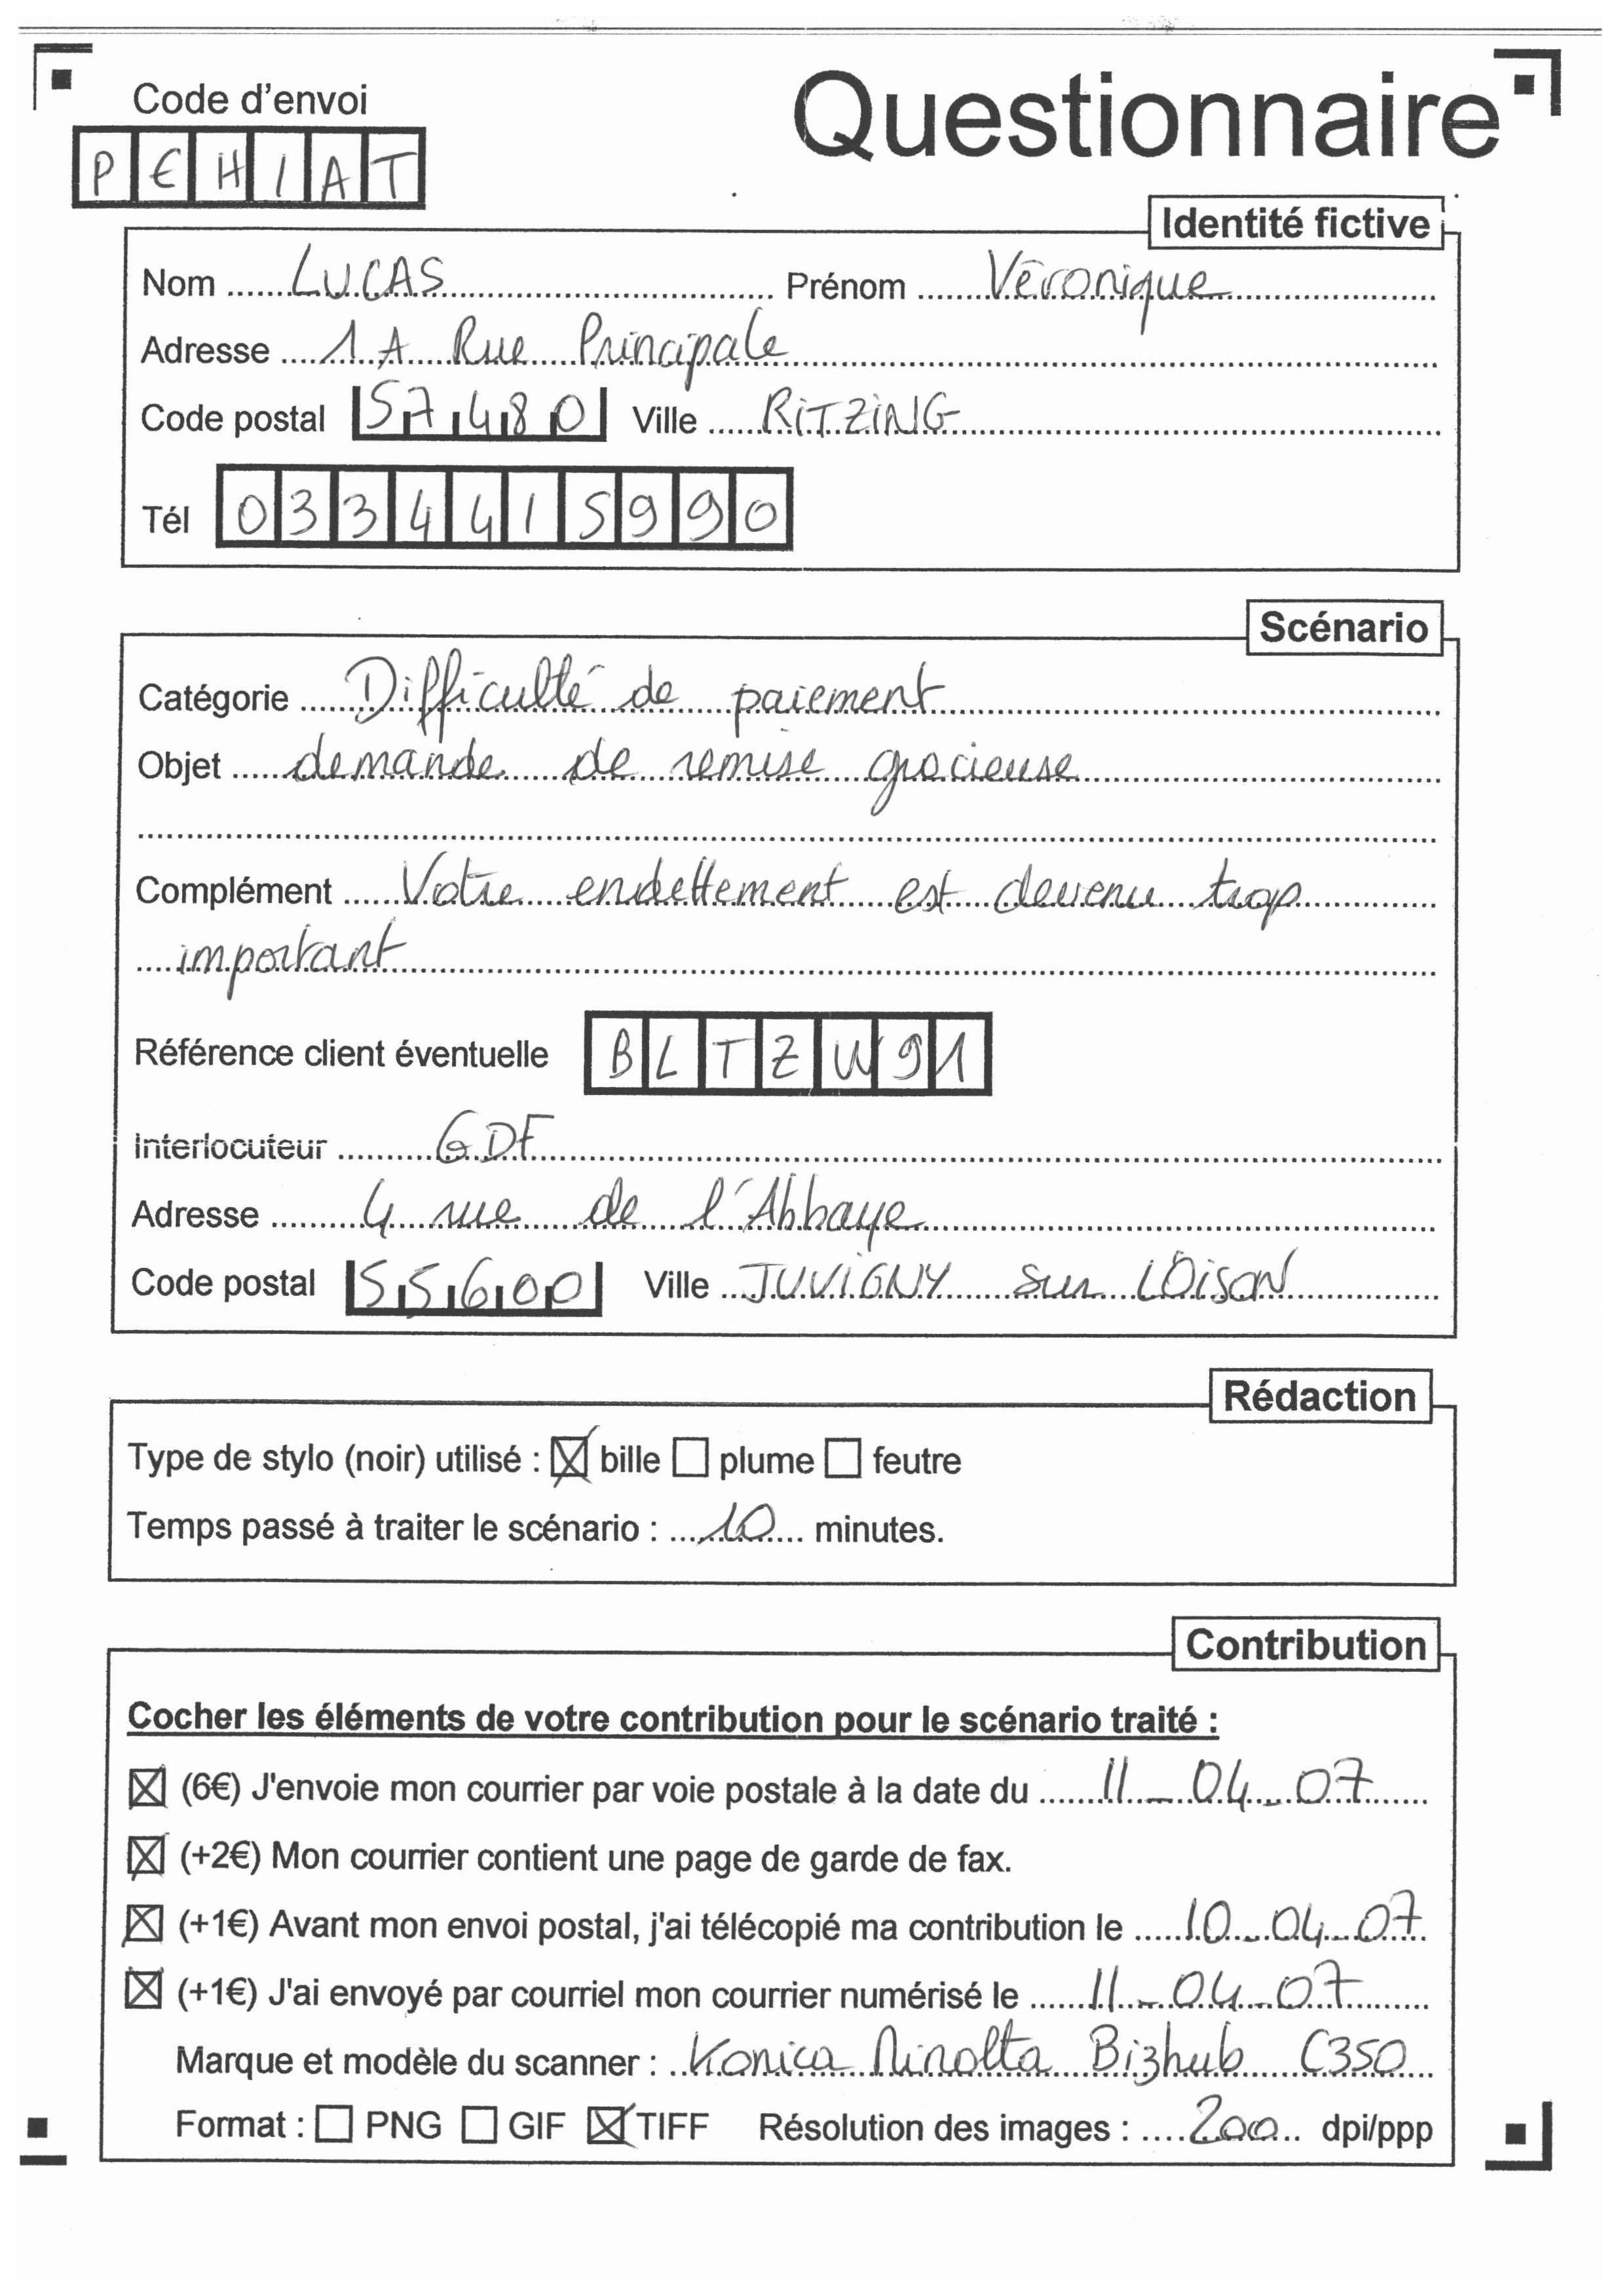 Code d'envoi
Questionnaire
PEHIAT
Identité fictive
Nom LUCAS Prénom Véronique
Adresse 1A Rue Principale
Code postal 57480 Ville RiTZiNG
Tél 0334415990
Scénario
Catégorie Difficulté de paiement
Objet demande de remise gracieuse
Complément Votre endettement est devenu trop
important
Référence client éventuelle BLTZW91
Interlocuteur GDF
Adresse 4 rue de l'Abbaye
Code postal 55600 Ville JUVIGNY sur LOisoN
Rédaction
Type de stylo (noir) utilisé : ☒ bille ☐ plume ☐ feutre
Temps passé à traiter le scénario : 10 minutes.
Contribution
Cocher les éléments de votre contribution pour le scénario traité :
☒ (6€) J'envoie mon courrier par voie postale à la date du 11-04-07
☒ (+2€) Mon courrier contient une page de garde de fax.
☒ (+1€) Avant mon envoi postal, j'ai télécopié ma contribution le 10-04-07
☒ (+1€) J'ai envoyé par courriel mon courrier numérisé le 11-04-07
Marque et modèle du scanner : Konica Minolta Bizhub C350
Format : ☐ PNG ☐ GIF ☒ TIFF Résolution des images : 200 dpi/ppp